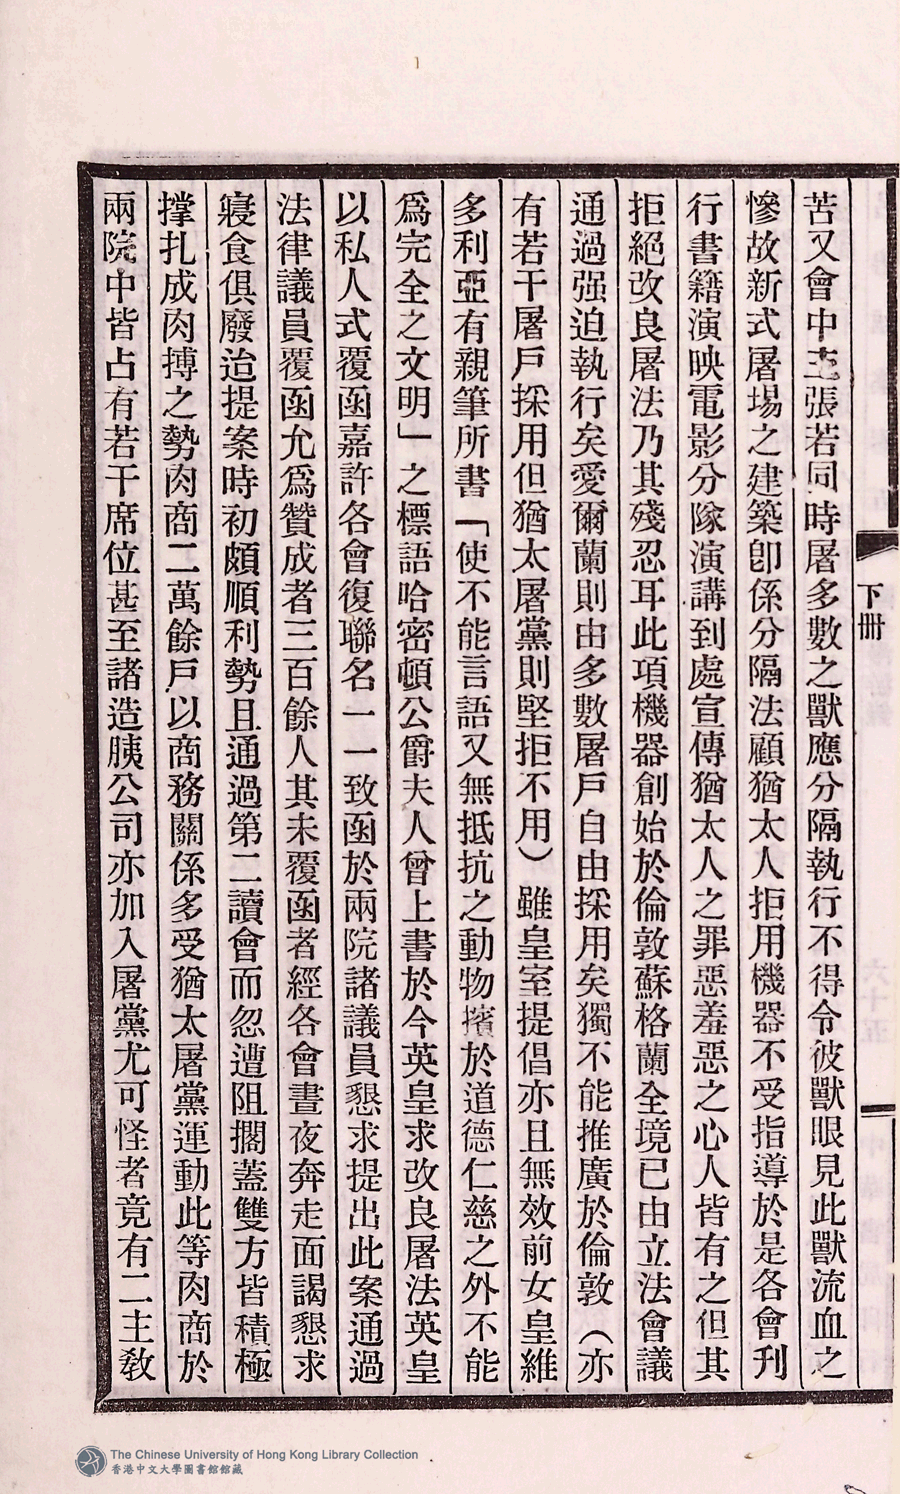 下冊
苦又會中主張若同時屠多數之獸應分隔執行不得令彼獸眼見此獸流血之
慘故新式屠場之建築卽係分隔法顧猶太人拒用機器不受指導於是各會刋
行書籍演映電影分隊演講到處宣傳猶太人之罪惡羞惡之心人皆有之但其
拒絕改良屠法乃其殘忍耳此項機器創始於倫敦蘇格蘭全境已由立法會議
通過强迫執行矣愛爾蘭則由多數屠戶自由採用矣獨不能推廣於倫敦（亦
有若干屠戶採用但猶太屠黨則堅拒不用）雖皇室提倡亦且無效前女皇維
多利亞有親筆所書「使不能言語又無抵抗之動物擯於道德仁慈之外不能
爲完全之文明」之標語哈密頓公爵夫人曾上書於今英皇求改良屠法英皇
以私人式覆函嘉許各會復聯名一一致函於兩院諸議員懇求提出此案通過
法律議員覆函允爲贊成者三百餘人其未覆函者經各會晝夜奔走面謁懇求
寢食俱廢迨提案時初頗順利勢且通過第二讀會而忽遭阻擱蓋雙方皆積極
撑扎成肉搏之勢肉商二萬餘戶以商務關係多受猶太屠黨運動此等肉商於
兩院中皆占有若干席位甚至諸造胰公司亦加入屠黨尤可怪者竟有二主敎
The Chinese University of Hong Kong Library Collection
香港中文大學圖書館館藏